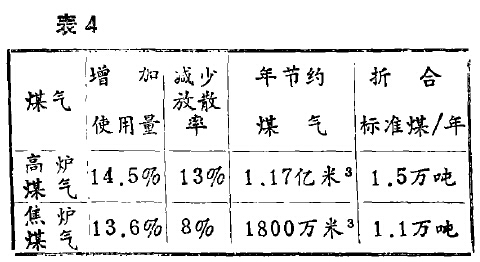 表4
煤气 增加使用量 减少放散率 年节约煤气 折合标准煤/年
高炉煤气 14.5% 13% 1.17亿米³ 1.5万吨
焦炉煤气 13.6% 8% 1800万米³ 1.1万吨